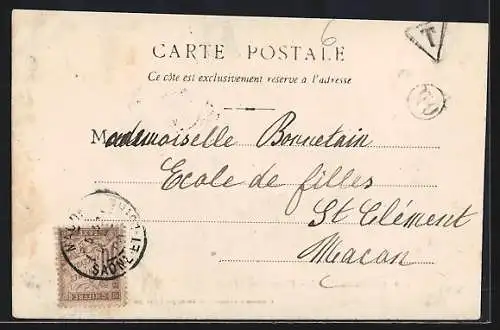 6
CARTE POSTALE
T
Ce côté est exclusivement réservé à l'adresse
Mademoiselle Bonnetain
Ecole de filles
St Clément
Macon
SAONE